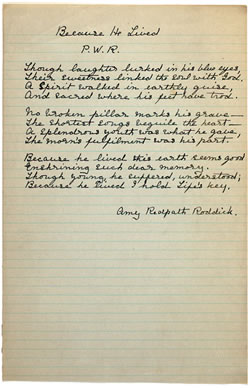 Because He Lived
P.W.R.
Though laughter lurked in his blue eyes,
Their sweetness linked the soul with God.
A Spirit walked in earthly guise,
And sacred where his feet have trod.
No broken pillar marks his grave—
The shortest songs beguile the heart—
A splendrous youth was what he gave,
The morn's fulfilment was his part.
Because he lived this earth seems good
Enshrining such dear memory.
Though young, he suffered, understood;
Because he lived I hold Life's key.
Amy Redpath Roddick.